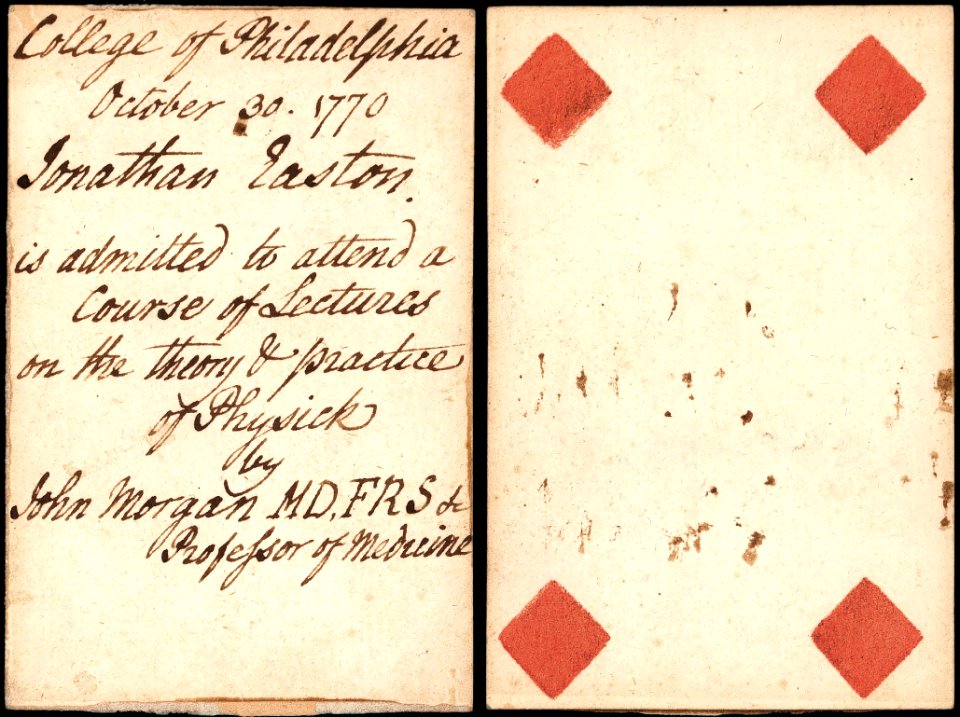 College of Philadelphia
October 30. 1770
Jonathan Easton.
is admitted to attend a
Course of Lectures
on the theory & practice
of Physick
by
John Morgan MD, FRS &c
Profeſsor of Medicine